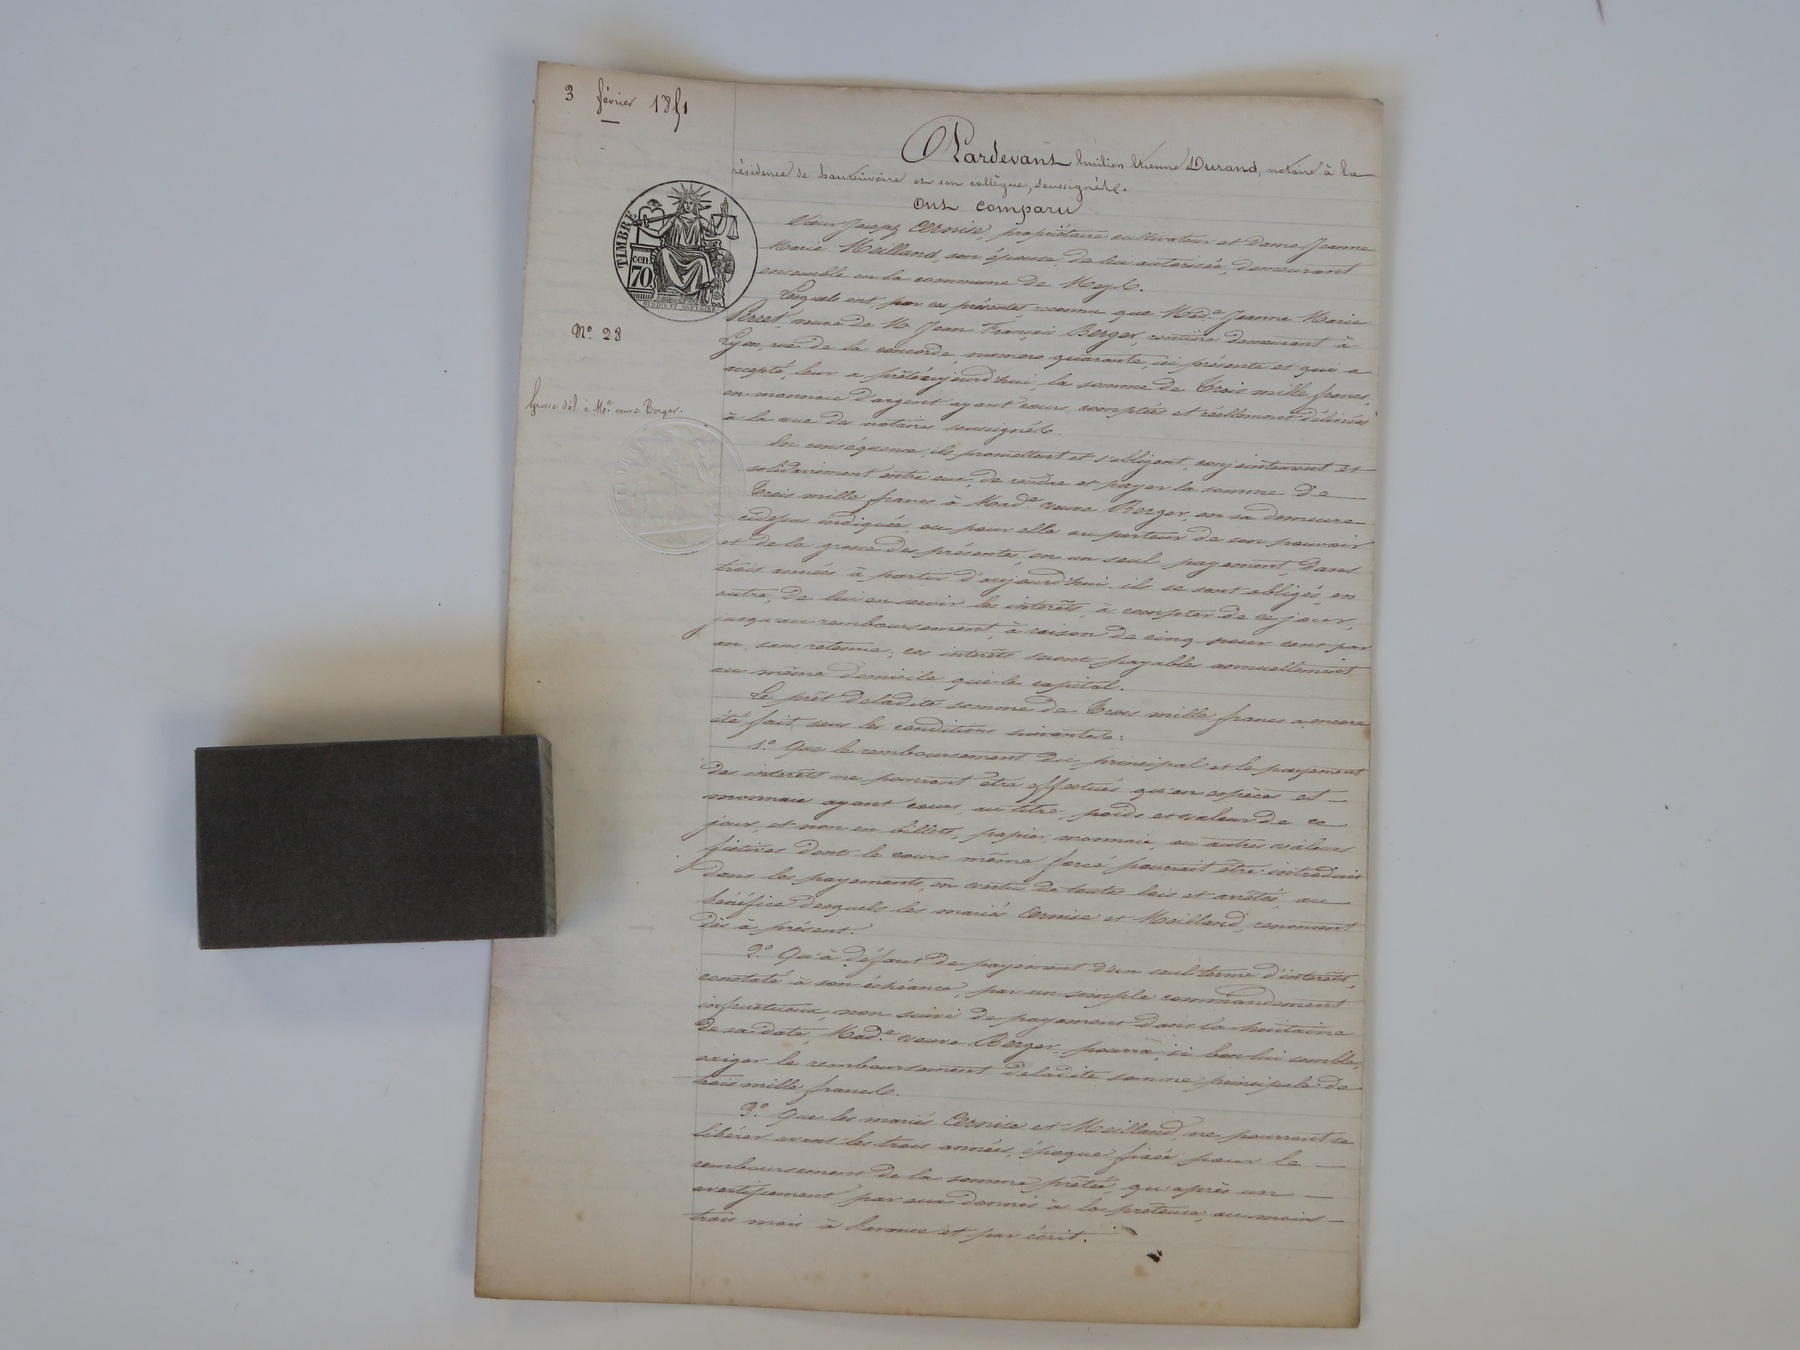 3 février 1851
Pardevant Emilien Etienne Durand, notaire à la
résidence de et son collègue, soussignés.
Ont comparu
Sieur Joseph Cornise, propriétaire cultivateur et Dame Jeanne
Marie Meilland, son épouse, de lui autorisée, demeurant
ensemble en la commune de Meys.
TIMBRE
cen
70
Lesquels ont, par ces présentes, reconnu que Mad.e Jeanne Marie
Perret, veuve de M Jean François Berger, rentière demeurant à
Lyon, rue de la concorde, numero quarante, ici présente et qui a
accepté, leur a prêté aujourd'hui, la somme de Trois mille francs,
en monnaie d'argent ayant cours, comptés et réellement délivrés
à la vue des notaires soussignés.
N.o 28
Grosse dél. à Me. veuve Berger.
En conséquence, ils promettent et s'obligent, conjointement et
solidairement entre eux, de rendre et payer la somme de
Trois mille francs à Mad.e veuve Berger, en sa demeure
cidessus indiquée, ou pour elle au porteur de son pouvoir
et de la grosse des présentes, en un seul payement, dans
trois années à partir d'aujourd'hui. ils se sont obligés, en
outre, de lui en servir les intérêts, à compter de ce jour,
jusqu'au remboursement, à raison de cinq pour cent par
an, sans retenue; ces intérêts seront payables annuellement
au même domicile que le capital.
Le prêt de ladite somme de Trois mille francs a encore
été fait sous les conditions suivantes:
1.o Que le remboursement du principal et le payement
des intérêts ne pourront être effectués qu'en espèce et
monnaie ayant cours, au titre, poids et valeur de ce
jour, et non en billets, papier monnaie, ou autres valeurs
fictives dont le cours même forcé pourrait être introduit
dans les payements, en vertu de toute lois et arrêtés, au
bénéfice desquels les mariés Cornise et Meilland, renoncent
dès à présent.
2.o Qu'à défaut de payement d'un seul terme d'intérêts,
constaté à son échéance, par un simple commandement
infructueux, non suivi de payement dans la huitaine
de sa date, Mad.e veuve Berger, pourra, si bon lui semble,
exiger le remboursement de ladite somme principale de
trois mille francs.
3.o Que les mariés Cornise et Meilland, ne pourront se
libérer avant les trois années, époque fixée pour le
remboursement de la somme prêtée, qu'après un
avertissement par eux donnés à la prêteuse, au moins
trois mois à l'avance et par écrit.